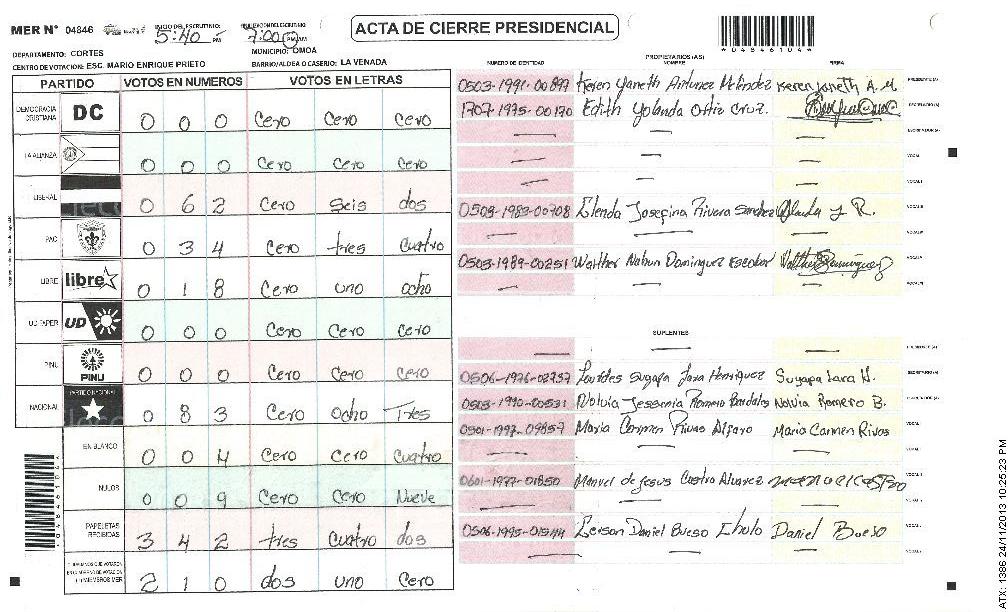 MER N° 04846
INICIO DEL ESCRUTINIO: 5:40 PM
7:00 PM AM
ACTA DE CIERRE PRESIDENCIAL
*04846104*
DEPARTAMENTO: CORTES
MUNICIPIO: OMOA
CENTRO DE VOTACION: ESC. MARIO ENRIQUE PRIETO
BARRIO/ALDEA O CASERIO: LA VENADA
PARTIDO VOTOS EN NUMEROS VOTOS EN LETRAS
DEMOCRACIA CRISTIANA DC 0 0 0 Cero Cero Cero
LA ALIANZA 0 0 0 Cero Cero Cero
LIBERAL 0 6 2 Cero Seis dos
PAC 0 3 4 Cero tres Cuatro
LIBRE libre 0 1 8 Cero uno ocho
UD FAPER UD 0 0 0 Cero Cero Cero
PINU PINU 0 0 0 Cero Cero Cero
NACIONAL PARTIDO NACIONAL 0 8 3 Cero Ocho Tres
EN BLANCO 0 0 4 Cero Cero Cuatro
NULOS 0 0 9 Cero Cero Nueve
PAPELETAS RECIBIDAS 3 4 2 tres Cuatro dos
2 1 0 dos uno Cero
PROPIETARIOS (AS)
NUMERO DE IDENTIDAD NOMBRE FIRMA
0503-1991-00897 Keren Yaneth Antunez Melendez Keren Janeth A. M. PRESIDENTE (A)
1707-1975-00170 Edith Yolanda Ortiz Cruz. SECRETARIO (A)
ESCRUTADOR (A)
VOCAL
VOCAL I
0503-1983-00708 Elenda Josefina Rivera Sanchez VOCAL II
0503-1989-00251 Walther Nahun Dominguez Escobar Walther Dominguez
SUPLENTES
PRESIDENTE (A)
0506-1976-02737 Lourdes Sugapa Jara Henriquez Sugapa Lara H. SECRETARIO (A)
0503-1990-00531 Nolvia Jessenia Romero Bardales Nolvia Romero B. ESCRUTADOR (A)
0501-1997-09857 Maria Carmen Rivas Alfaro Maria Carmen Rivas VOCAL
0601-1977-01850 Manuel de Jesus Castro Alvarez
0506-1995-01544 Gerson Daniel Bueso Daniel Bueso
ATX: 1386 24/11/2013 10:25:23 PM